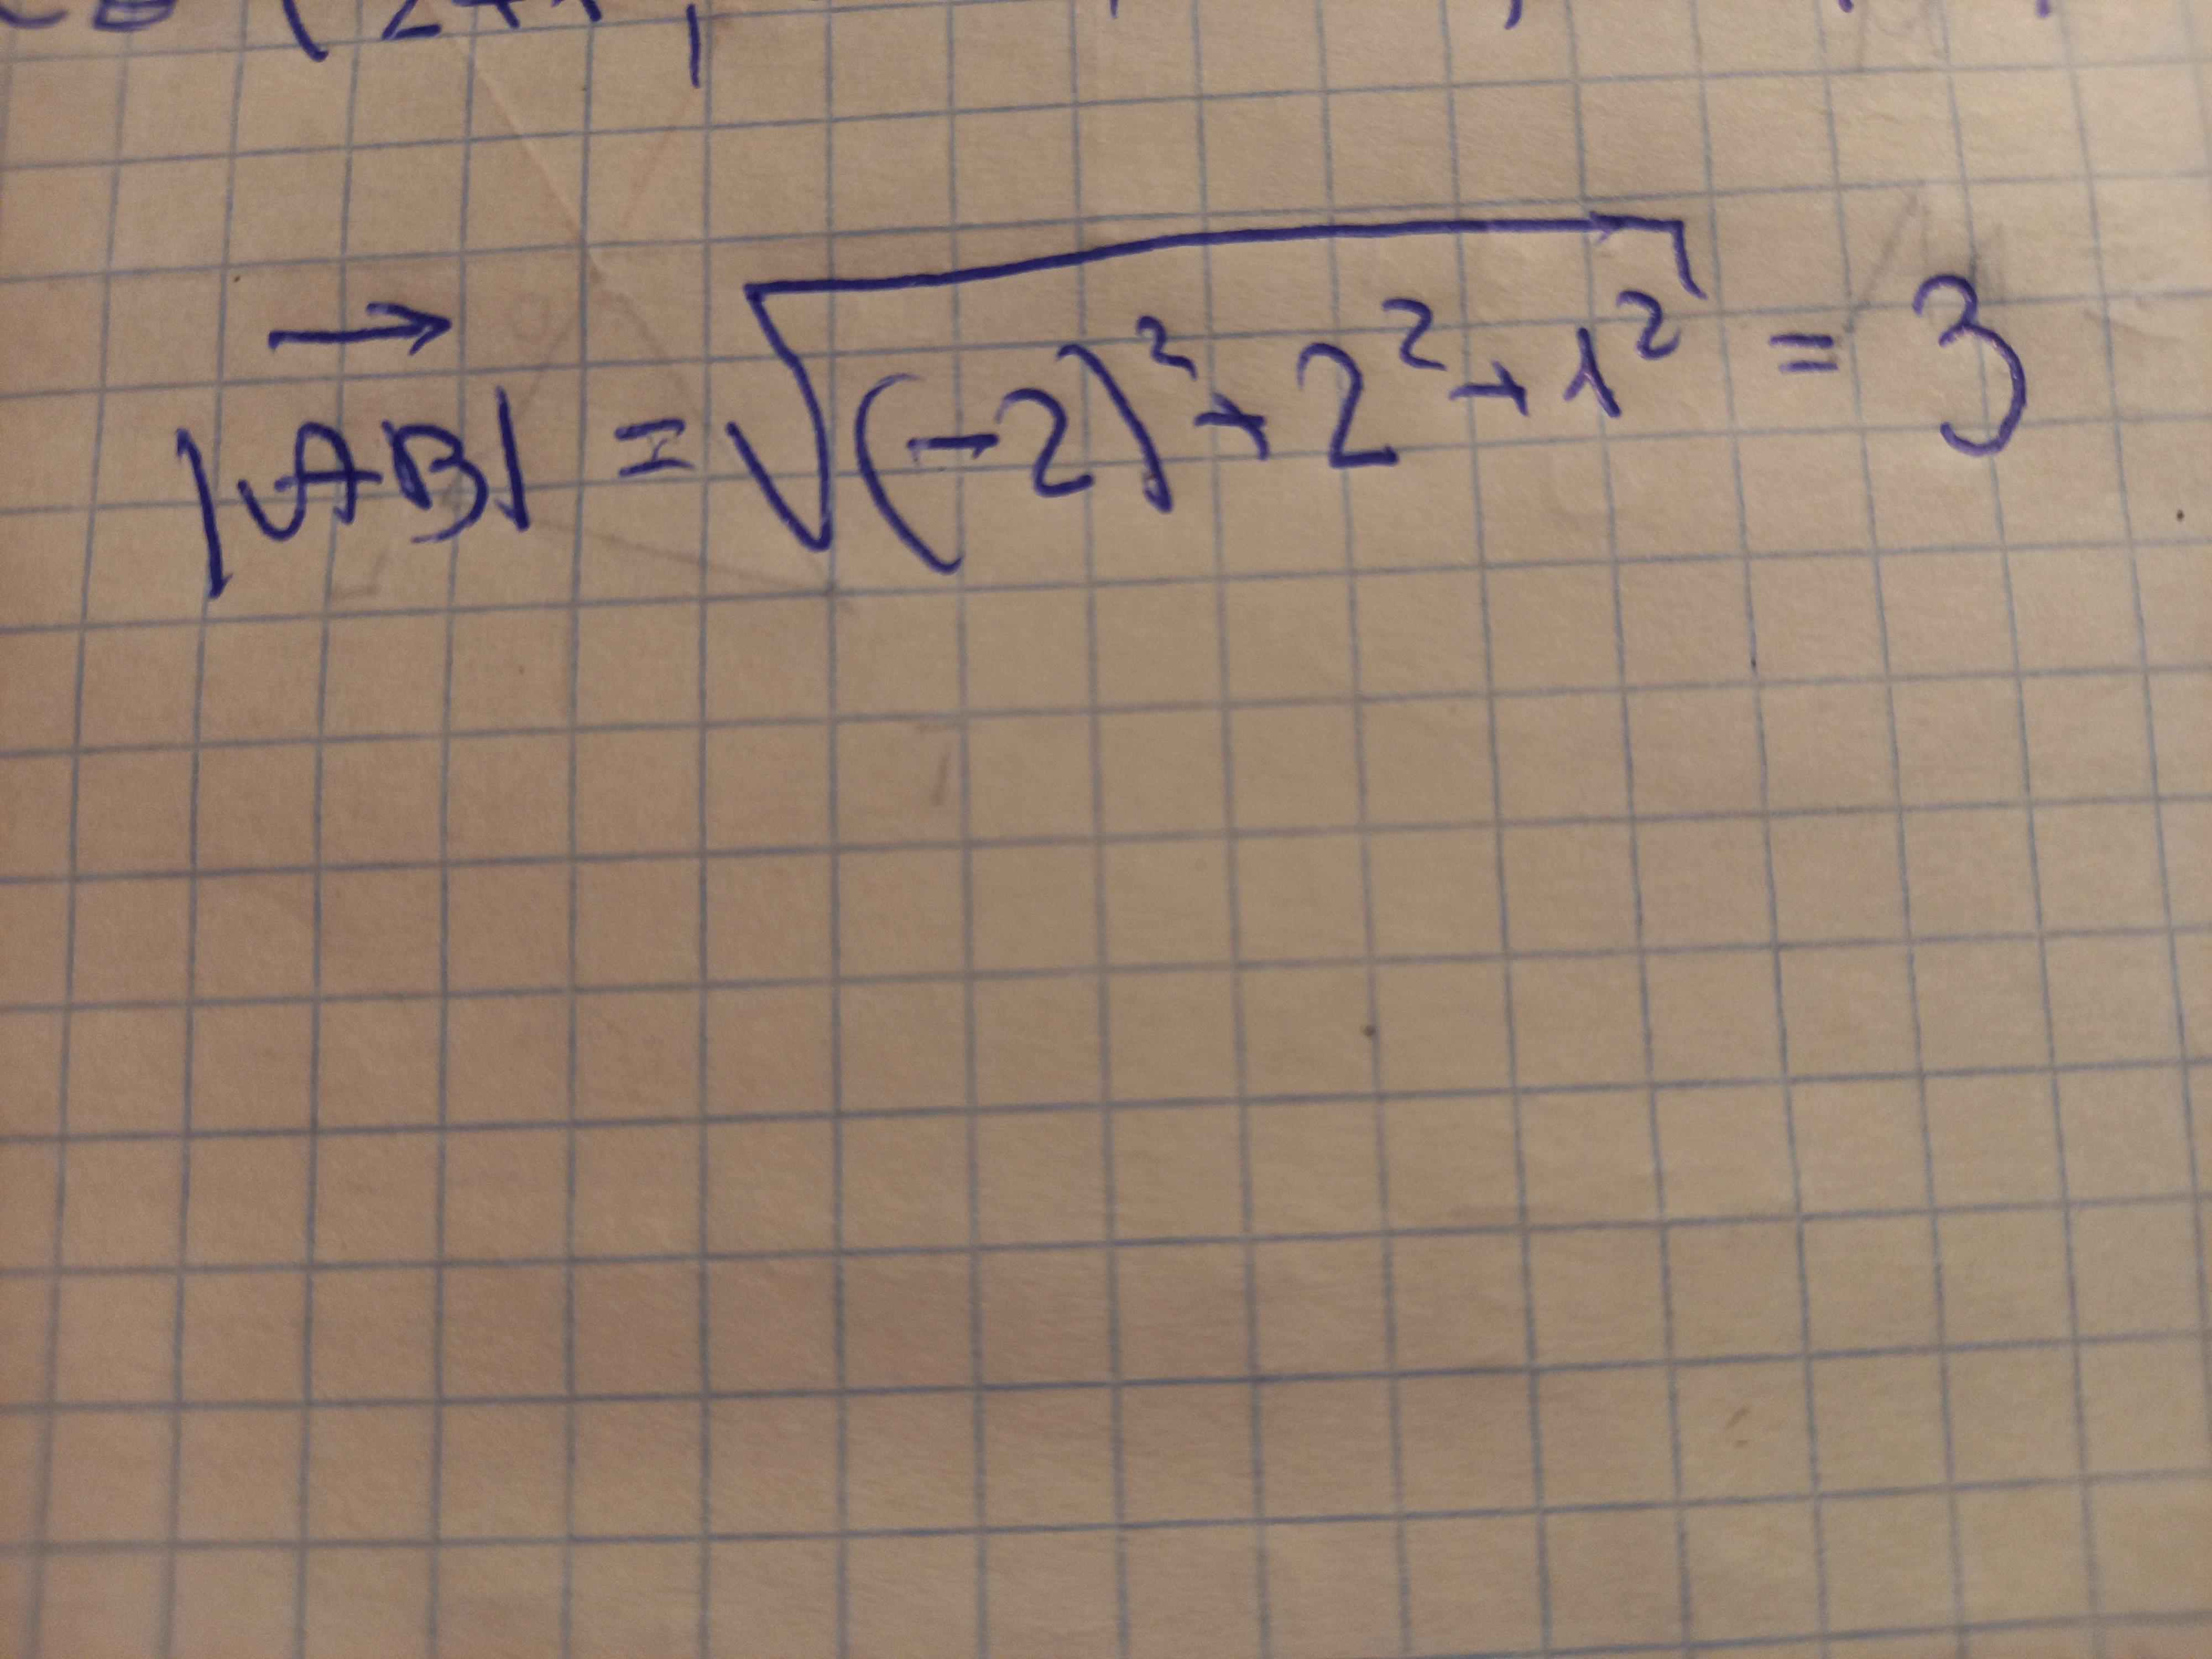 |AB⃗| = √((-2)² + 2² + 1²) = 3